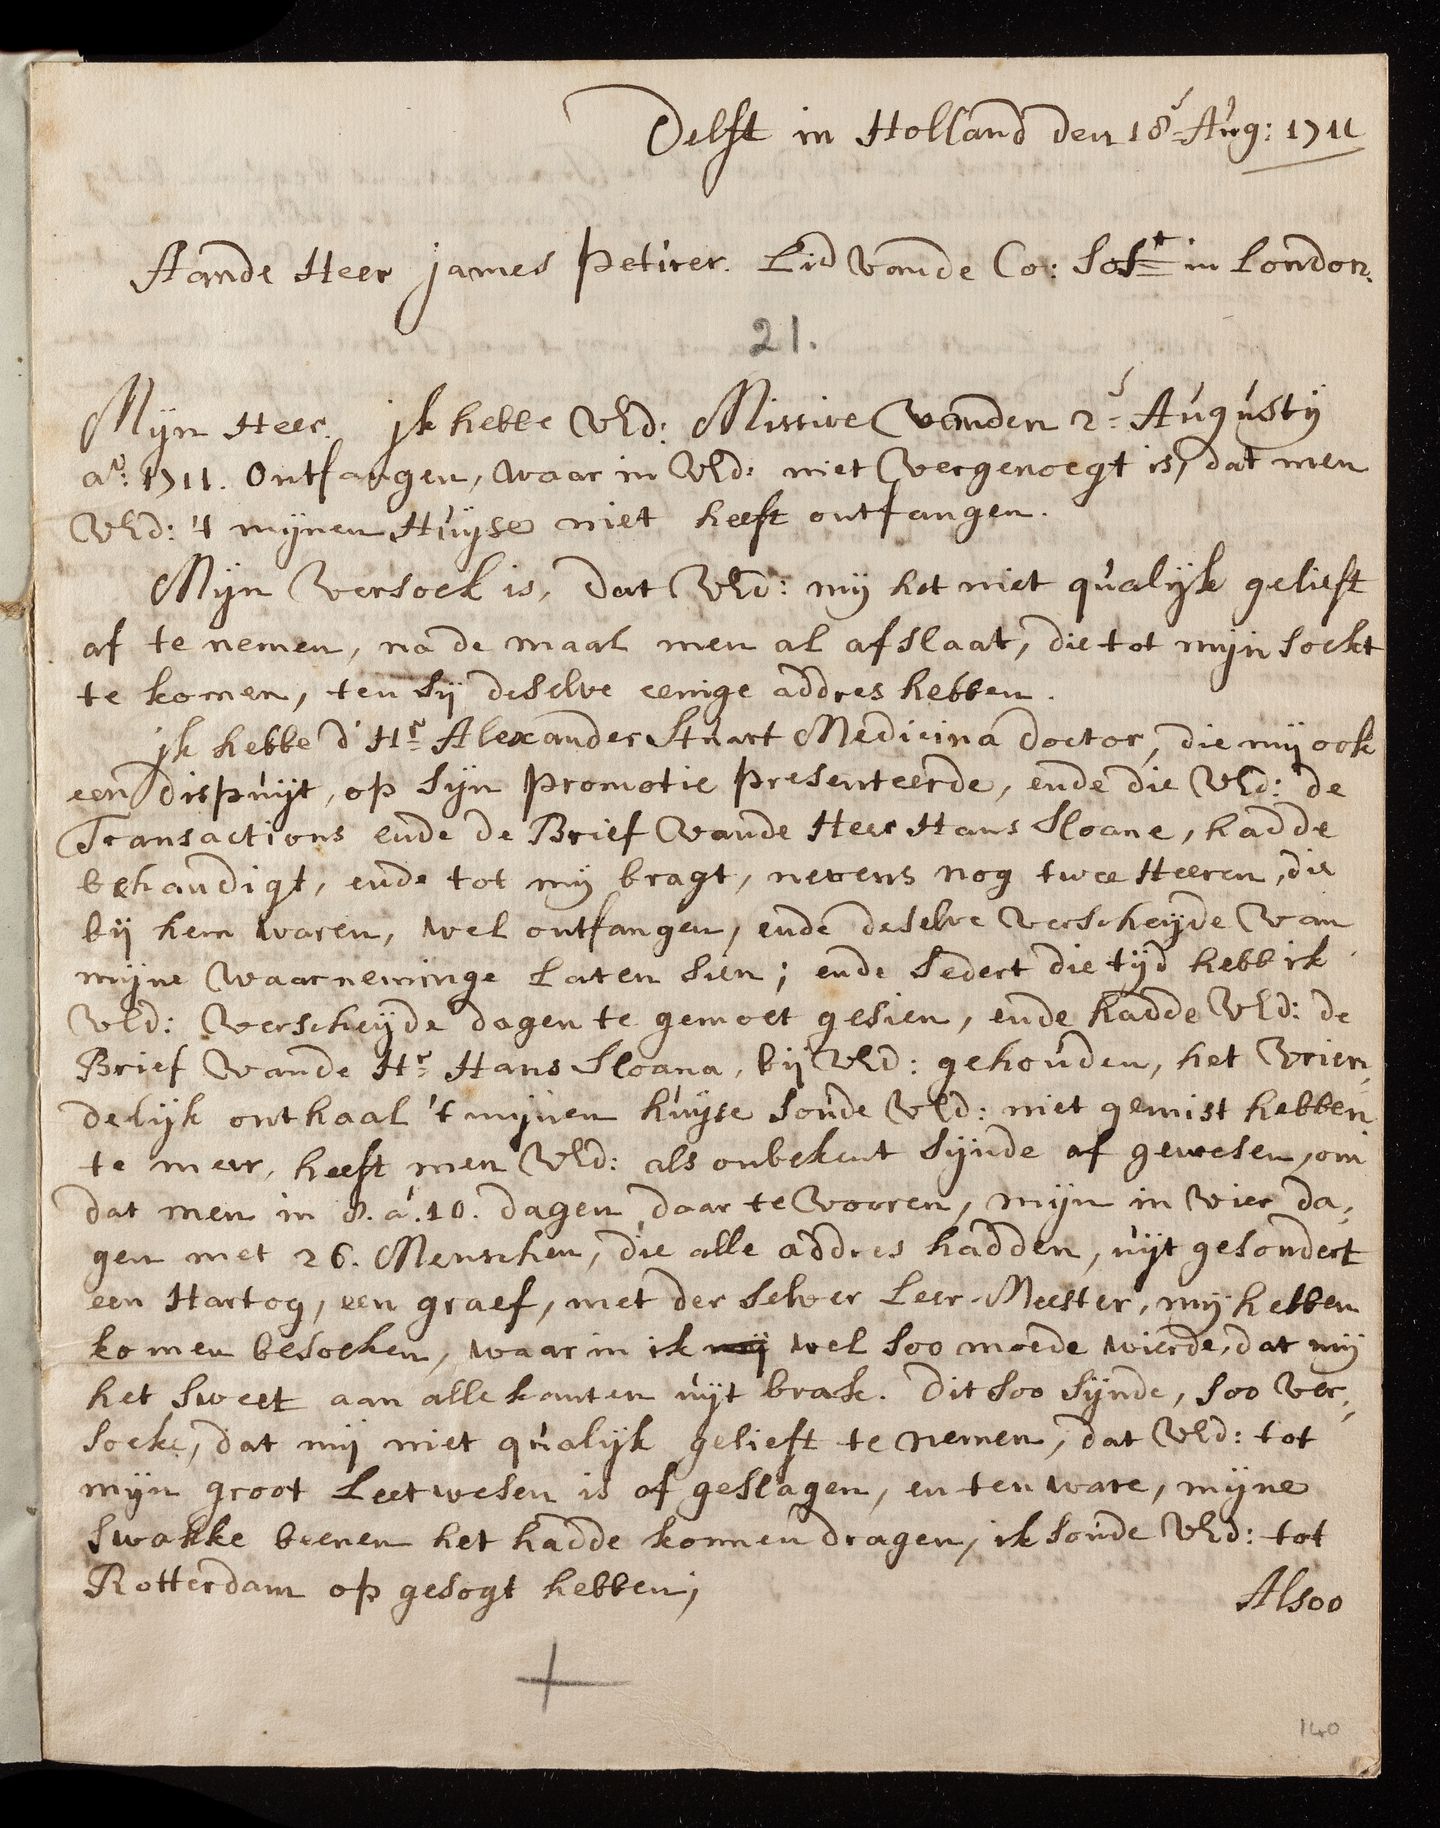 Delft in Holland den 18e Aug: 1711
Aande Heer james petirer. Lid vande Co: Sost in London.
21.
Mijn Heer. jk hebbe UEd: Missive vanden 2e Augusty
ao: 1711. Ontfangen, waar in UEd: niet vergenoegt is, dat men
UEd: 't mijnen Huijse niet heeft ontfangen.
Mijn versoek is, dat UEd: mij het niet qualijk gelieft
af te nemen, na de maal men al afslaat, die tot mijn soekt
te komen, ten sij deselve eenige addres hebben.
jk hebbe d' Hr Alexander Stuart Medicina doctor, die mij ook
een dispuijt, op sijn promotie presenteerde, ende die UEd: de
Transactions ende de Brief vande Heer Hans Sloane, hadde
behandigt, ende tot mij bragt, nevens nog twee Heeren, die
bij hem waren, wel ontfangen, ende deselve verscheijde van
mijne waarneminge Laten sien; ende sedert die tijd hebb ik
UEd: verscheijde dagen te gemoet gesien, ende hadde UEd: de
Brief vande Hr Hans Sloana, bij UEd: gehouden, het vrien,
delijk onthaal 't mijnen huijse soude UEd: niet gemist hebben
te meer, heeft men UEd: als onbekent sijnde af gewesen, om
dat men in 8. a. 10. dagen daar te vooren, mijn in vier da,
gen met 26. Menschen, die alle addres hadden, uijt gesondert
een Hartog, een graef, met der selver Leer-Meester, mij hebben
komen besoeken, waar in ik mij wel soo moede wierde, dat mij
het sweet aan alle kanten uijt brak. Dit soo sijnde, soo ver,
soeke, dat mij niet qualijk gelieft te nemen, dat UEd: tot
mijn groot Leetwesen is af geslagen, en ten ware, mijne
swakke beenen het hadde konnen dragen, ik soude UEd: tot
Rotterdam op gesogt hebben;
Alsoo
140